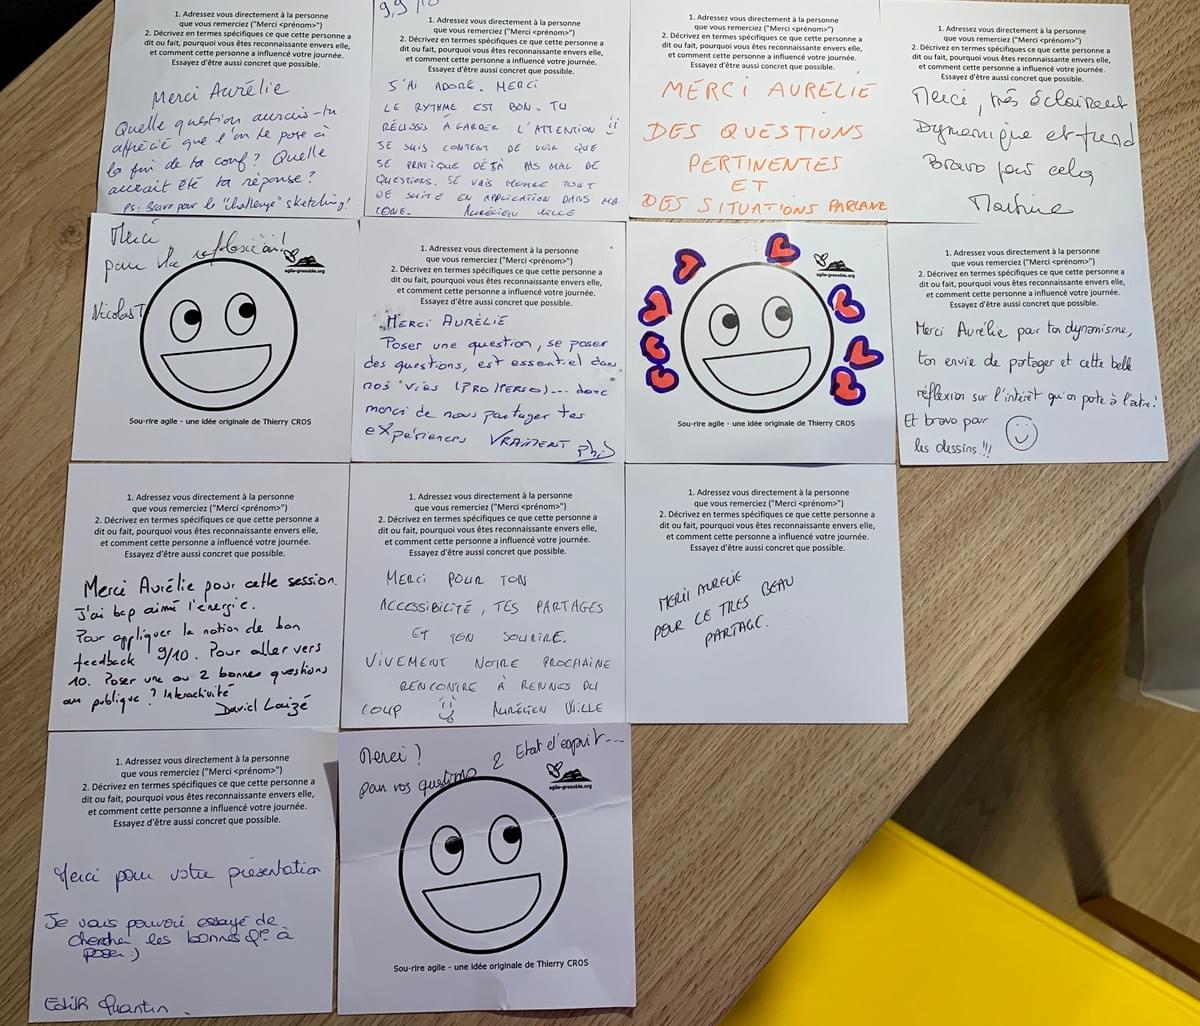 1. Adressez vous directement à la personne
que vous remerciez ("Merci <prénom>")
2. Décrivez en termes spécifiques ce que cette personne a
dit ou fait, pourquoi vous êtes reconnaissante envers elle,
et comment cette personne a influencé votre journée.
Essayez d'être aussi concret que possible.
Merci Aurélie
Quelle question aurais-tu
apprécié que l'on te pose à
la fin de ta conf? Quelle
aurait été ta réponse?
PS: Bravo pour le "challenge" sketching!
9,9/10
1. Adressez vous directement à la personne
que vous remerciez ("Merci <prénom>")
2. Décrivez en termes spécifiques ce que cette personne a
dit ou fait, pourquoi vous êtes reconnaissante envers elle,
et comment cette personne a influencé votre journée.
Essayez d'être aussi concret que possible.
J'AI ADORÉ. MERCI
LE RYTHME EST BON. TU
RÉUSSIS À GARDER L'ATTENTION
JE SUIS CONTENT DE VOIR QUE
JE PRATIQUE DÉJÀ PAS MAL DE
QUESTIONS. JE VAIS METTRE TOUT
DE SUITE EN APPLICATION DANS MA
CONF. AURÉLIEN WILLE
1. Adressez vous directement à la personne
que vous remerciez ("Merci <prénom>")
2. Décrivez en termes spécifiques ce que cette personne a
dit ou fait, pourquoi vous êtes reconnaissante envers elle,
et comment cette personne a influencé votre journée.
Essayez d'être aussi concret que possible.
MERCI AURELIE
DES QUESTIONS
PERTINENTES
ET
DES SITUATIONS PARLANTE
1. Adressez vous directement à la personne
que vous remerciez ("Merci <prénom>")
2. Décrivez en termes spécifiques ce que cette personne a
dit ou fait, pourquoi vous êtes reconnaissante envers elle,
et comment cette personne a influencé votre journée.
Essayez d'être aussi concret que possible.
Merci, très éclairant
Dynamique et fun
Bravo pour cela
Martine
Merci
pour la reflexion!
NicolasT
agile-grenoble.org
Sou-rire agile - une idée originale de Thierry CROS
1. Adressez vous directement à la personne
que vous remerciez ("Merci <prénom>")
2. Décrivez en termes spécifiques ce que cette personne a
dit ou fait, pourquoi vous êtes reconnaissante envers elle,
et comment cette personne a influencé votre journée.
Essayez d'être aussi concret que possible.
MERCI AURÉLIE
Poser une question, se poser
des questions, est essentiel dans
nos vies (PRO/PERSO)... donc
merci de nous partager tes
expériences VRAIMENT Phil
agile-grenoble.org
Sou-rire agile - une idée originale de Thierry CROS
1. Adressez vous directement à la personne
que vous remerciez ("Merci <prénom>")
2. Décrivez en termes spécifiques ce que cette personne a
dit ou fait, pourquoi vous êtes reconnaissante envers elle,
et comment cette personne a influencé votre journée.
Essayez d'être aussi concret que possible.
Merci Aurélie pour ton dynamisme,
ton envie de partager et cette belle
réflexion sur l'intérêt qu'on porte à l'autre!
Et bravo pour
les dessins!!!
1. Adressez vous directement à la personne
que vous remerciez ("Merci <prénom>")
2. Décrivez en termes spécifiques ce que cette personne a
dit ou fait, pourquoi vous êtes reconnaissante envers elle,
et comment cette personne a influencé votre journée.
Essayez d'être aussi concret que possible.
Merci Aurélie pour cette session.
J'ai bcp aimé l'énergie.
Pour appliquer la notion de bon
feedback 9/10. Pour aller vers
10. Poser une ou 2 bonnes questions
au publique? Interactivité
David Laizé
1. Adressez vous directement à la personne
que vous remerciez ("Merci <prénom>")
2. Décrivez en termes spécifiques ce que cette personne a
dit ou fait, pourquoi vous êtes reconnaissante envers elle,
et comment cette personne a influencé votre journée.
Essayez d'être aussi concret que possible.
MERCI POUR TON
ACCESSIBILITÉ, TES PARTAGES
ET TON SOURIRE.
VIVEMENT NOTRE PROCHAINE
RENCONTRE À RENNES DU
COUP AURÉLIEN WILLE
1. Adressez vous directement à la personne
que vous remerciez ("Merci <prénom>")
2. Décrivez en termes spécifiques ce que cette personne a
dit ou fait, pourquoi vous êtes reconnaissante envers elle,
et comment cette personne a influencé votre journée.
Essayez d'être aussi concret que possible.
MERCI AURELIE
POUR CE TRES BEAU
PARTAGE.
1. Adressez vous directement à la personne
que vous remerciez ("Merci <prénom>")
2. Décrivez en termes spécifiques ce que cette personne a
dit ou fait, pourquoi vous êtes reconnaissante envers elle,
et comment cette personne a influencé votre journée.
Essayez d'être aussi concret que possible.
Merci pour votre présentation
Je vais pouvoir essayé de
chercher les bonnes Q° à
poser :)
Edith Quantin.
Merci!
pour vos questions & Etat d'esprit...
agile-grenoble.org
Sou-rire agile - une idée originale de Thierry CROS